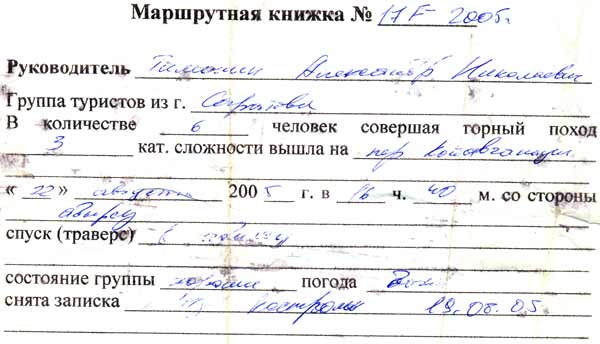 Маршрутная книжка № 17F - 2005г.
Руководитель Тимошин Александр Николаевич
Группа туристов из г. Саратова
В количестве 6 человек совершая горный поход
3 кат. сложности вышла на пер
« 22 » августа 2005 г. в 16 ч. 40 м. со стороны
Адырсу
спуск (траверс) в
состояние группы хорошее погода
снята записка Костромы 19.08.05